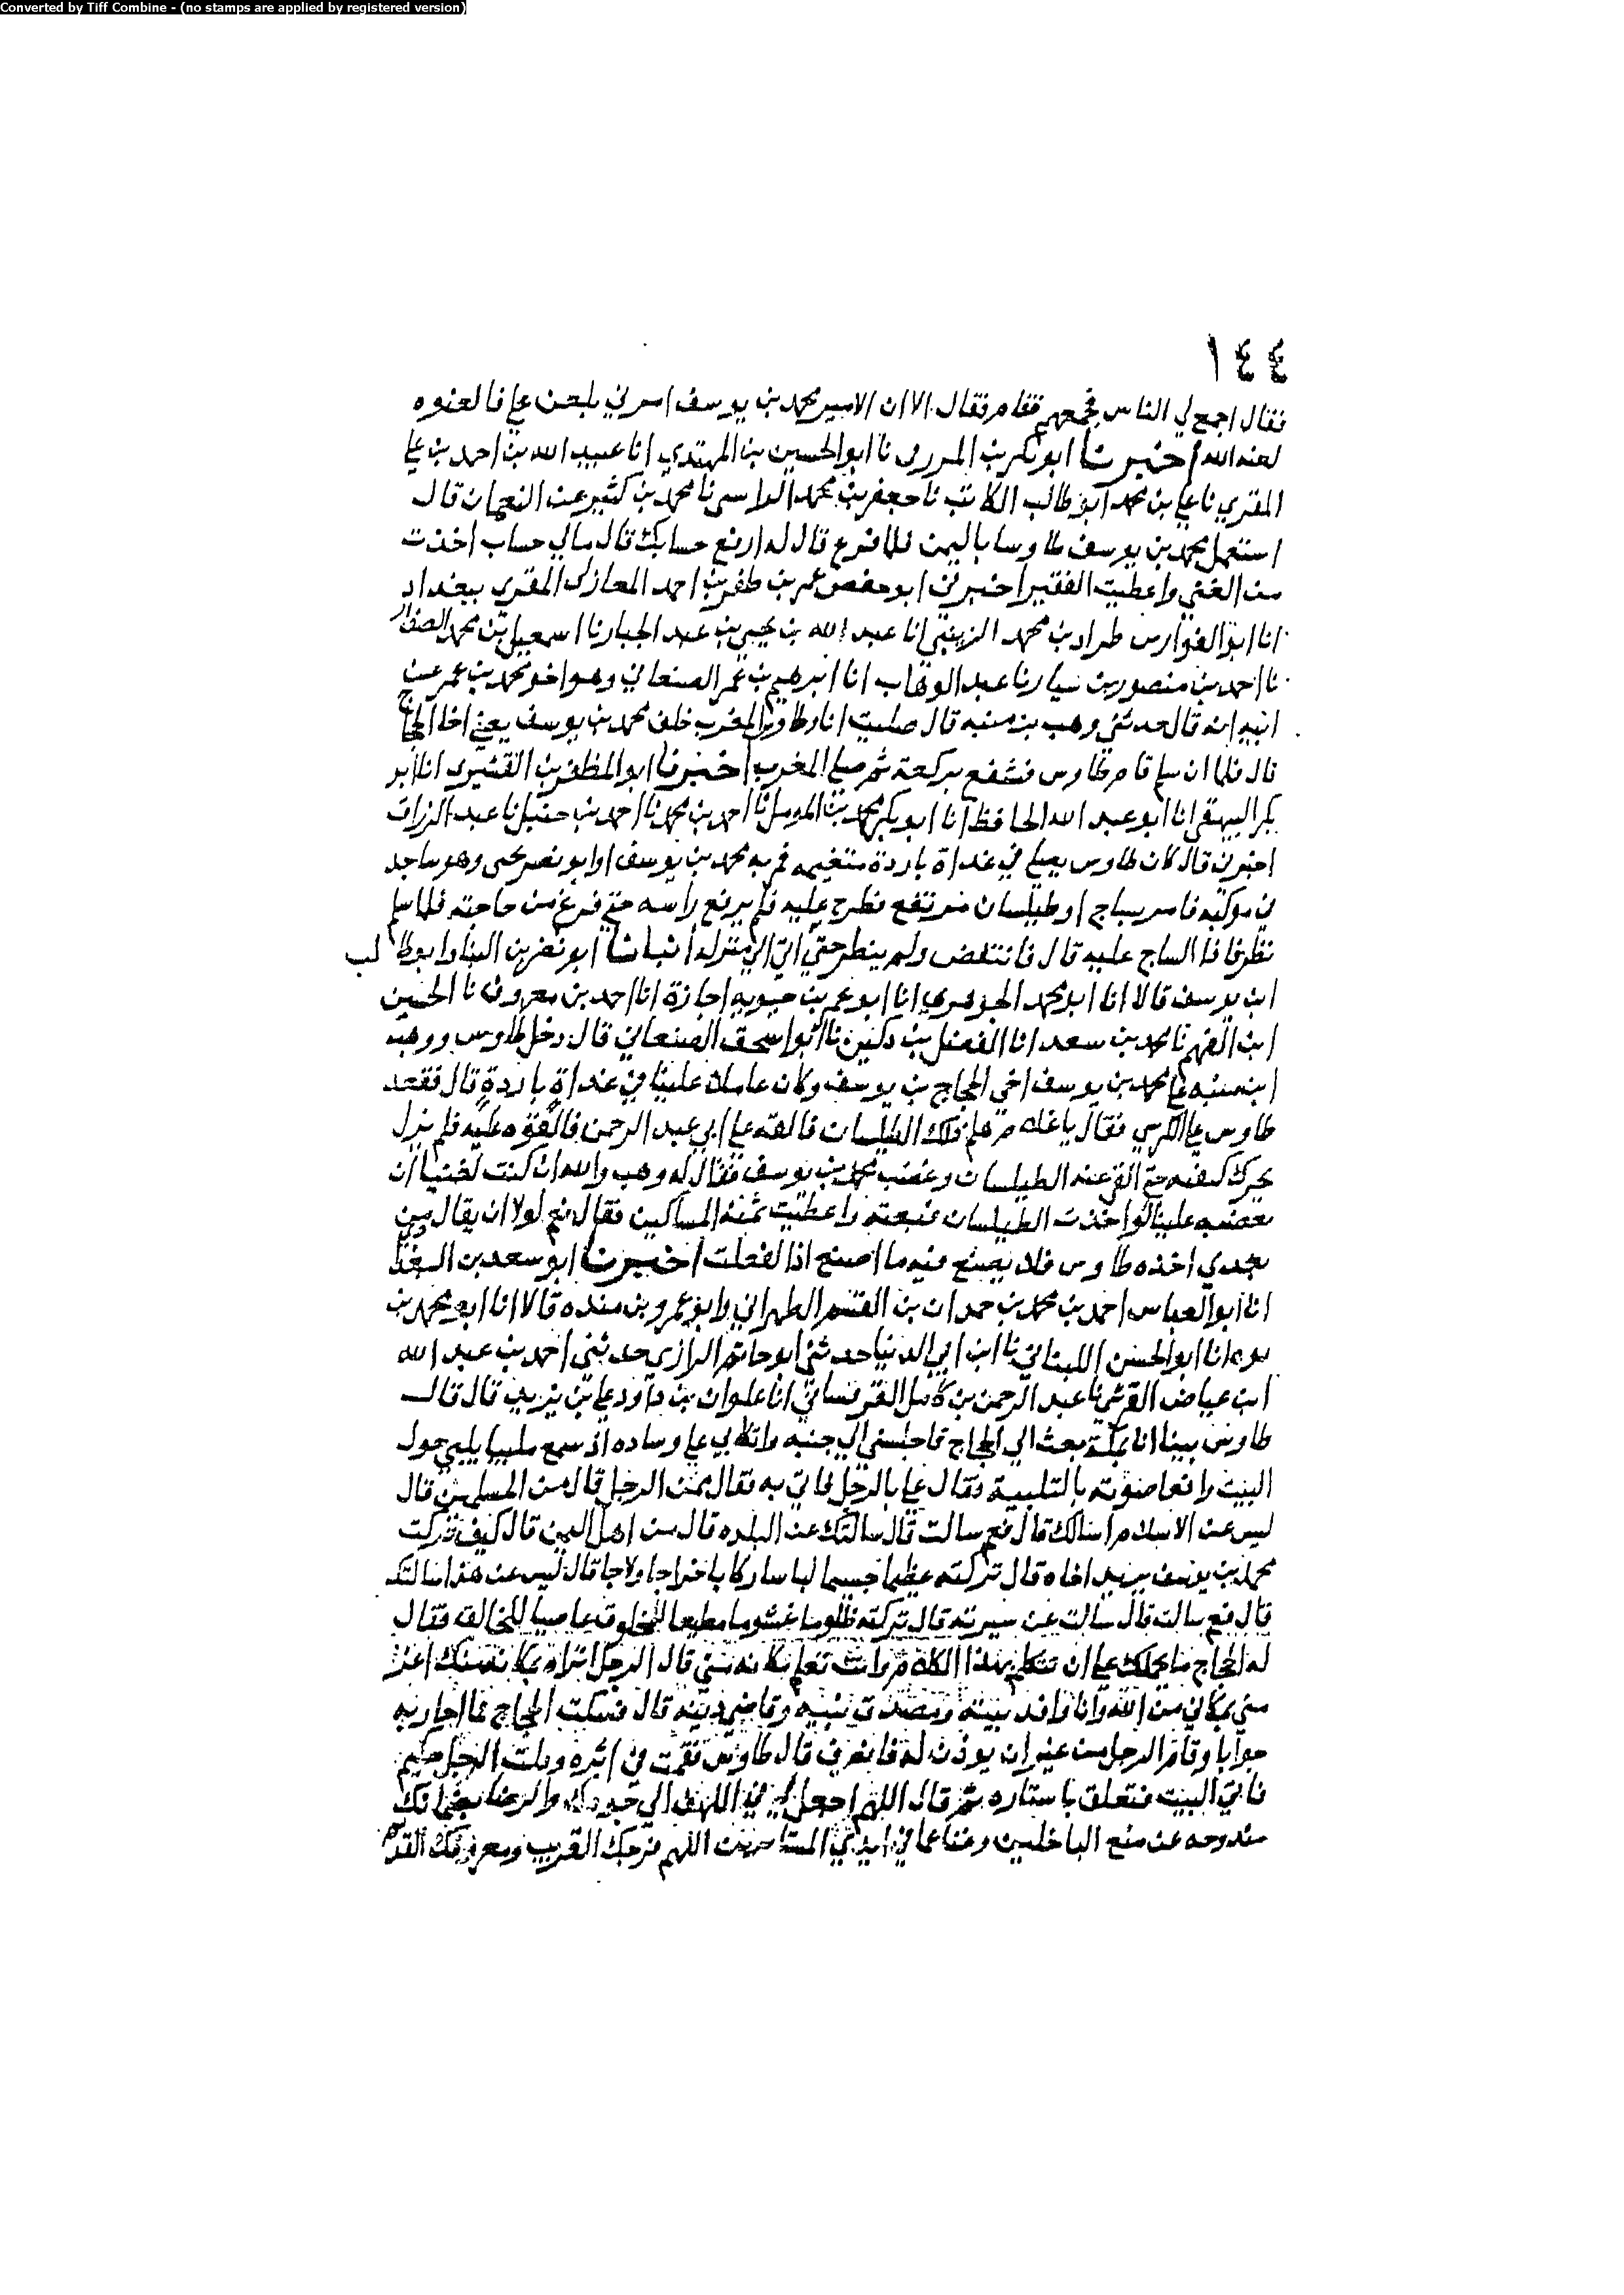 Converted by Tiff Combine - (no stamps are applied by registered version)
١٤٤
فقال اجمع لي الناس فجمعهم فقام فقال الا ان الامير محمد بن يوسف امرني بلعن علي فالعنوه
لعنه الله اخبرنا ابو بكر بن المزرفي نا ابو الحسين بن المهتدي انا عبيد الله بن احمد بن علي
المقري نا علي بن محمد ابو طالب الكاتب نا جعفر بن محمد الراسبي نا محمد بن كثير عن النعمان قال
استعمل محمد بن يوسف طاوسا باليمن فلما فرغ قال له ارفع حسابك قال مالي حساب اخذت
من الغني واعطيت الفقير اخبرني ابو حفص عمر بن ظفر بن احمد المغازلي المقري ببغداد
انا ابو الفوارس طراد بن محمد الزينبي انا عبد الله بن يحيى بن عبد الجبار نا اسمعيل بن محمد الصفار
نا احمد بن منصور بن سيار نا عبد الوهاب انا ابرهيم بن عمر الصنعاني وهو اخو محمد بن عمر عن
ابيه انه قال حدثني وهب بن منبه قال صليت انا وطاوس المغرب خلف محمد بن يوسف يعني اخا الحجاج
قال فلما ان سلم قام طاوس فشفع بركعة ثم صلى المغرب اخبرنا ابو المظفر بن القشيري انا ابو
بكر البيهقي انا ابو عبد الله الحافظ انا ابو بكر محمد بن المومل نا احمد بن محمد نا احمد بن حنبل نا عبد الرزاق
اخبرني قال كان طاوس يصلي في غداة باردة متغيمه فمر به محمد بن يوسف او ايوب بن يحيى وهو ساجد
في موكبه فامر بساج او طيلسان مرتفع فطرح عليه فلم يرفع راسه حتى فرغ من حاجته فلما سلم
نظر فاذا الساج عليه قال فانتفض ولم ينظر حتى اتى الى منزله انبانا ابو نصر بن البنا وابو طالب
ابن يوسف قالا انا ابو محمد الجوهري انا ابو عمر بن حيويه اجازة انا احمد بن معروف نا الحسين
ابن الفهم نا محمد بن سعد انا الفضل بن دكين نا ابو اسحق الصنعاني قال دخل طاوس ووهب
ابن منبه على محمد بن يوسف اخي الحجاج بن يوسف وكان عاملا علينا في غداة باردة قال فقعد
طاوس على الكرسي فقال يا غلام هلم ذلك الطيلسان فالقه على ابي عبد الرحمن فالقوه عليه فلم يزل
يحرك كتفيه حتى القى عنه الطيلسان وغضب محمد بن يوسف فقال له وهب والله ان كنت لغنيا ان
تغضبه علينا لو اخذت الطيلسان فبعته واعطيت ثمنه المساكين فقال نعم لولا ان يقال من
بعدي اخذه طاوس فلا يصنع فيه ما اصنع اذا لفعلت اخبرنا ابو سعد بن البغدا
انا ابو العباس احمد بن محمد بن حمدان بن القسم الطهراني وابو عمرو بن منده قالا انا ابو محمد بن
يوه انا ابو الحسن اللبناني نا ابن ابي الدنيا حدثني ابو حاتم الرازي حدثني احمد بن عبد الله
ابن عياض القرشي نا عبد الرحمن بن كامل القرقساني انا علوان بن داود علي بن يزيد قال قال
طاوس بينا انا بمكة بعث الي الحجاج فاجلسني الى جنبه واتكاني على وساده اذ سمع ملبيا يلبي حول
البيت رافعا صوته بالتلبية فقال علي بالرجل فاتي به فقال ممن الرجل قال من المسلمين قال
ليس عن الاسلام اسالك قال فعم سالت قال سالتك عن البلد قال من اهل اليمن قال كيف تركت
محمد بن يوسف يريد اخاه قال تركته عظيما جسيما لباسا ركابا خراجا ولاجا قال ليس عن هذا سالتك
قال فعم سالت قال سالت عن سيرته قال تركته ظلوما غشوما مطيعا للمخلوق عاصيا للخالق فقال
له الحجاج ما يحملك على ان تتكلم بهذا الكلام وانت تعلم مكانه مني قال الرجل اتراه بمكانه منك اعز
مني بمكاني من الله وانا وافد بيته ومصدق نبيه وقاضي دينه قال فسكت الحجاج فما احار به
جوابا وقام الرجل من غير ان يوذن له فانصرف قال طاوس فقمت في اثره وقلت الرجل حكيم
فاتى البيت فتعلق باستاره ثم قال اللهم اجعل لي في اللهف الى جودك والرضا بضمانك
مندوحه عن منع الباخلين وغنا عما في ايدي المستاثرين اللهم فرجك القريب ومعروفك القديم